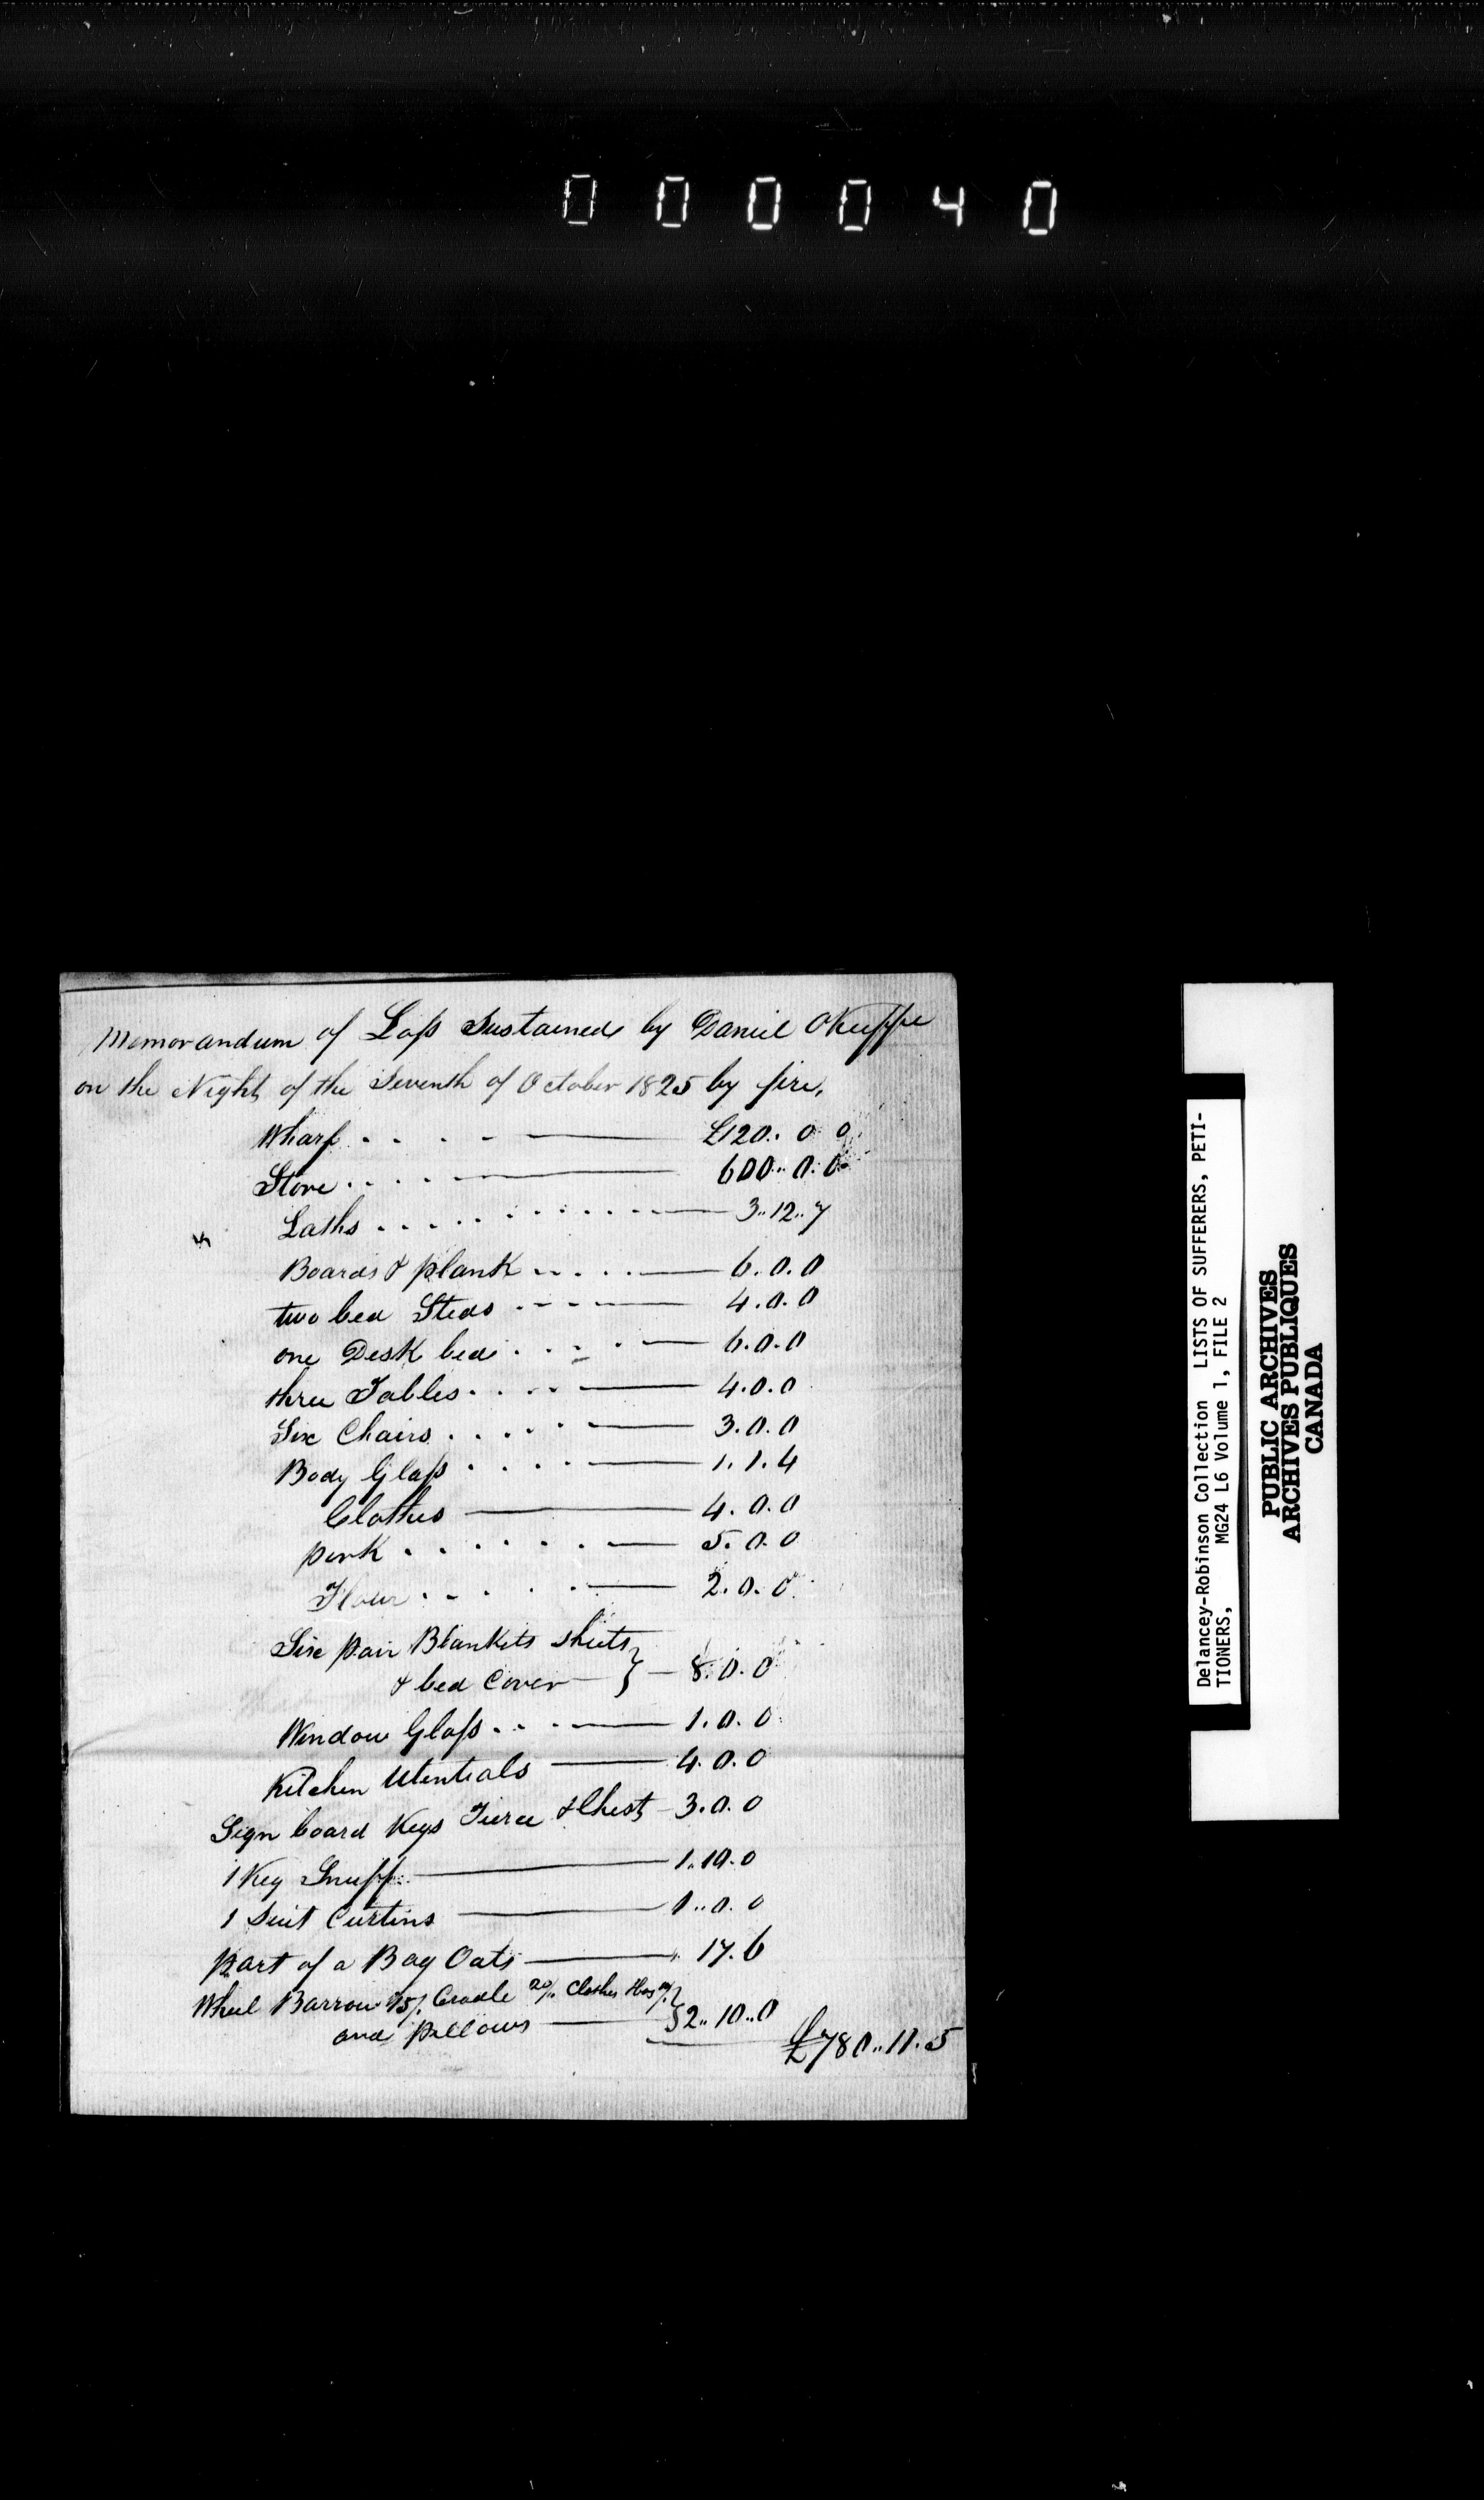 000040
Memorandum of Loss Sustained by Daniel OKeeffe
on the Night of the Seventh of October 1825 by fire,
Wharf . . . . — £120.. 0 0
Store . . . . — 600.. 0. 0
Laths . . . . . — 3..12..7
Boards & plank . . . . — 6.0.0
two bed Steds . . . — 4.0.0
one Desk bed . . . . — 6.0.0
three Tables . . . . — 4.0.0
Six Chairs . . . . — 3.0.0
Body Glass . . . . — 1.1.4
Clothes — 4.0.0
pork . . . . . . — 5.0.0
Flour . . . . — 2.0.0
Six pair Blankets sheets
& bed Cover } — 8.0.0
Window Glass . . . — 1.0.0
Kitchen Utentials — 4.0.0
Sign board Kegs Tierce & Chest — 3.0.0
1 Keg Snuff — 1..10.0
1 Suit Curtins — 1..0.0
part of a Bag Oats — " 17.6
Wheel Barrow 15/. Cradle 20/. Clothes }
and pillows — 2..10..0
£780..11.5
Delancey-Robinson Collection LISTS OF SUFFERERS, PETI-
TIONERS, MG24 L6 Volume 1, FILE 2
PUBLIC ARCHIVES
ARCHIVES PUBLIQUES
CANADA